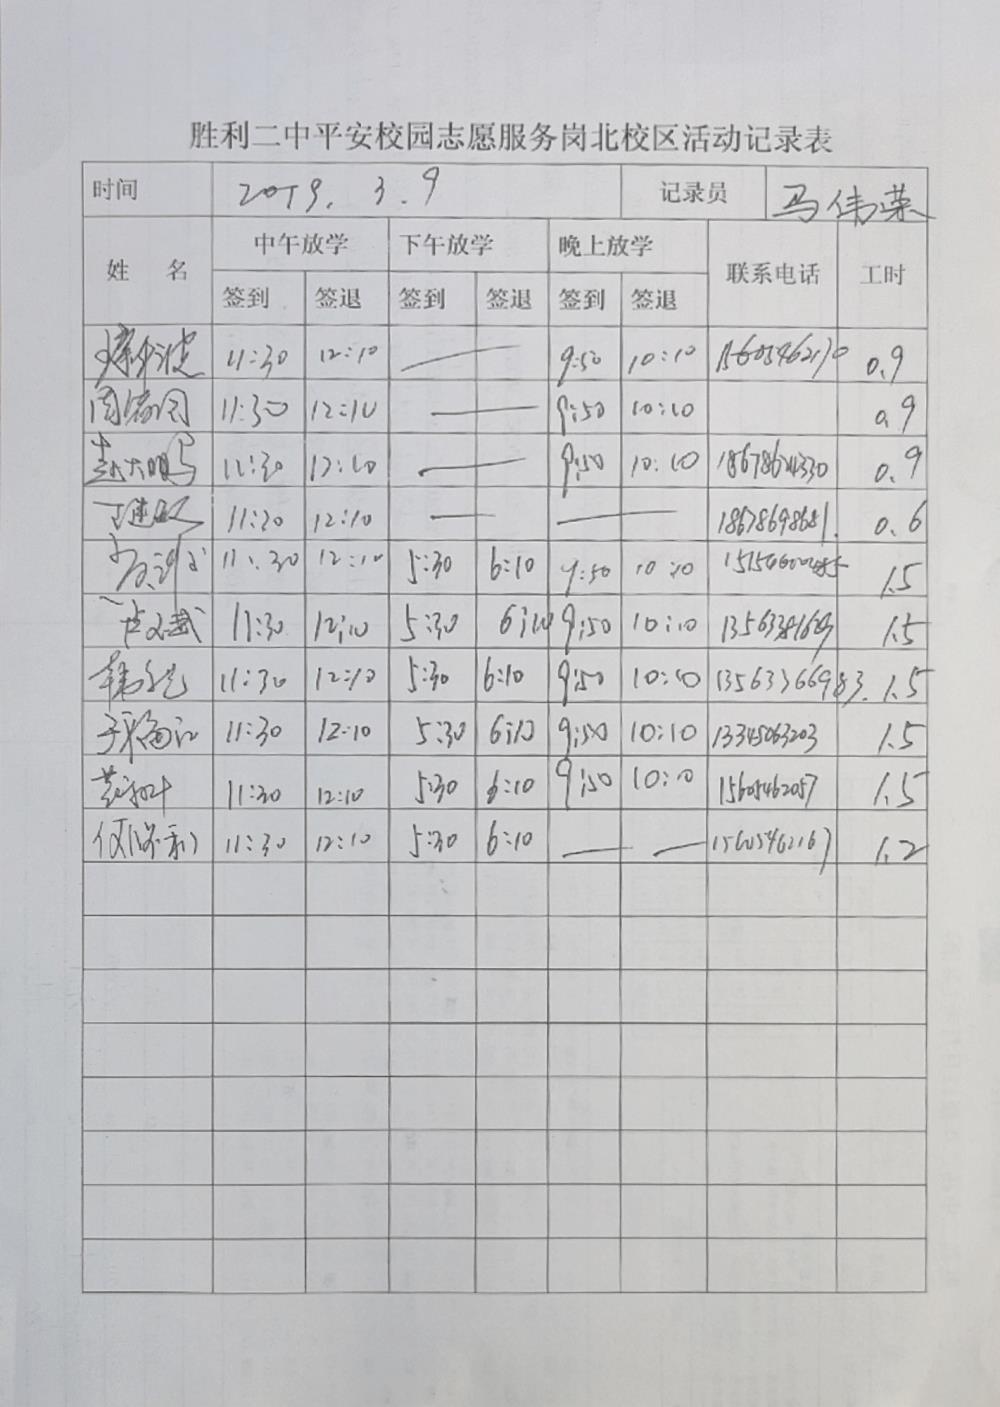 胜利二中平安校园志愿服务岗北校区活动记录表
时间 2019. 3. 9 记录员 马伟荣
姓 名 中午放学 下午放学 晚上放学 联系电话 工时
签到 签退 签到 签退 签到 签退
11:30 12:10 — 9:50 10:10 0.9
11:30 12:10 — 9:50 10:10 0.9
赵大鹏 11:30 12:10 — 9:50 10:10 18678624330 0.9
11:30 12:10 — — 18678698681 0.6
11:30 12:10 5:30 6:10 9:50 10:10 1.5
11:30 12:10 5:30 6:10 9:50 10:10 1.5
11:30 12:10 5:30 6:10 9:50 10:10 13563366983 1.5
11:30 12:10 5:30 6:10 9:50 10:10 13345063203 1.5
11:30 12:10 5:30 6:10 9:50 10:10 15605462057 1.5
11:30 12:10 5:30 6:10 — — 1.2